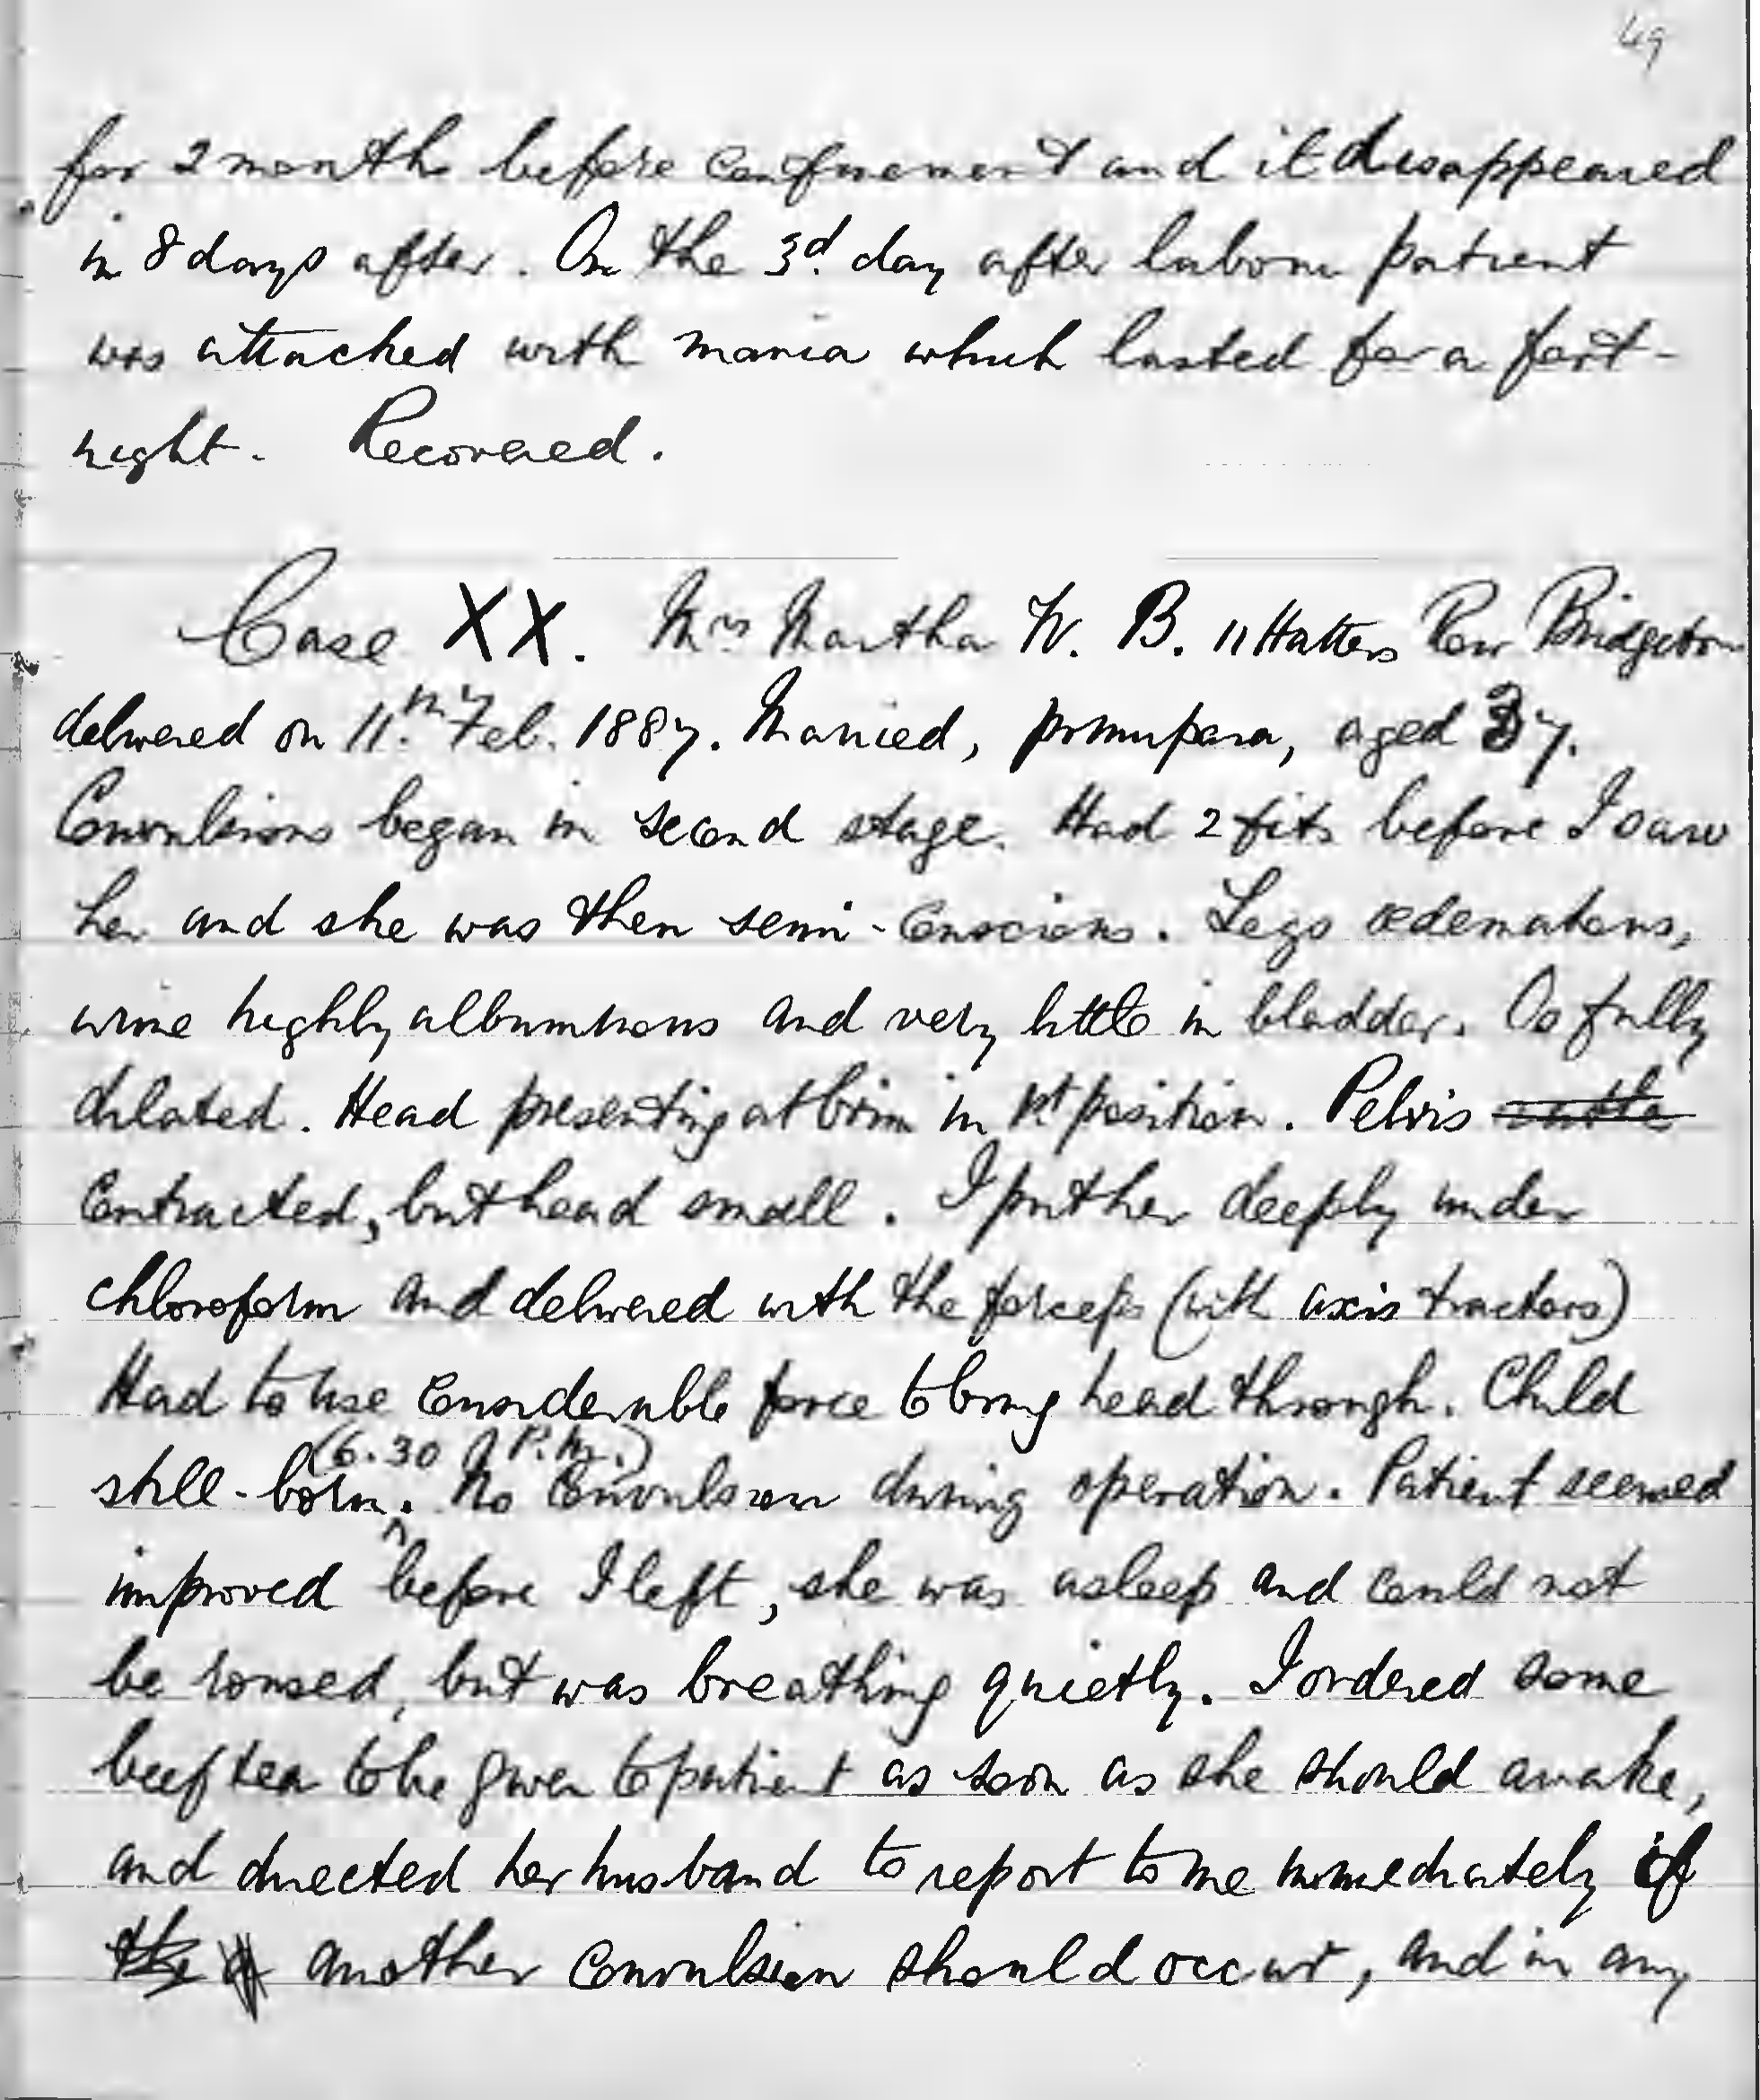 49
for 2 months before confinement and it disappeared
in 8 days after. On the 3d. day after labour patient
was attacked with mania which lasted for a fort-
night. Recovered.
Case XX. Mrs Martha W. B. 11 Hatters Row Bridgeton
delivered on 11th Feb. 1887. Married, primipara, aged 37.
Convulsions began in second stage. Had 2 fits before I saw
her and she was then semi-conscious. Legs œdematous,
urine highly albuminous and very little in bladder. Os fully
dilated. Head presenting at brim in 1st position. Pelvis
contracted, but head small. I put her deeply under
chloroform and delivered with the forceps (with axis tractors)
Had to use considerable force to bring head through. Child
(6.30 P.M.)
still-born. No convulsion during operation. Patient seemed
improved before I left, she was asleep and could not
be roused, but was breathing quietly. I ordered some
beef tea to be given to patient as soon as she should awake,
and directed her husband to report to me immediately if
the if another convulsion should occur, and in any